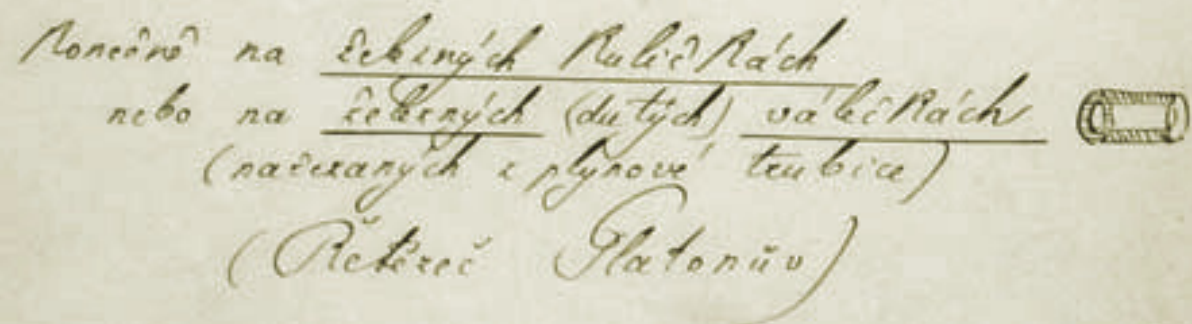 Konečně na železných kuličkách
nebo na železných (dutých) válečkách
(nařezaných z plynové trubice)
(Řetězeč Platonův)